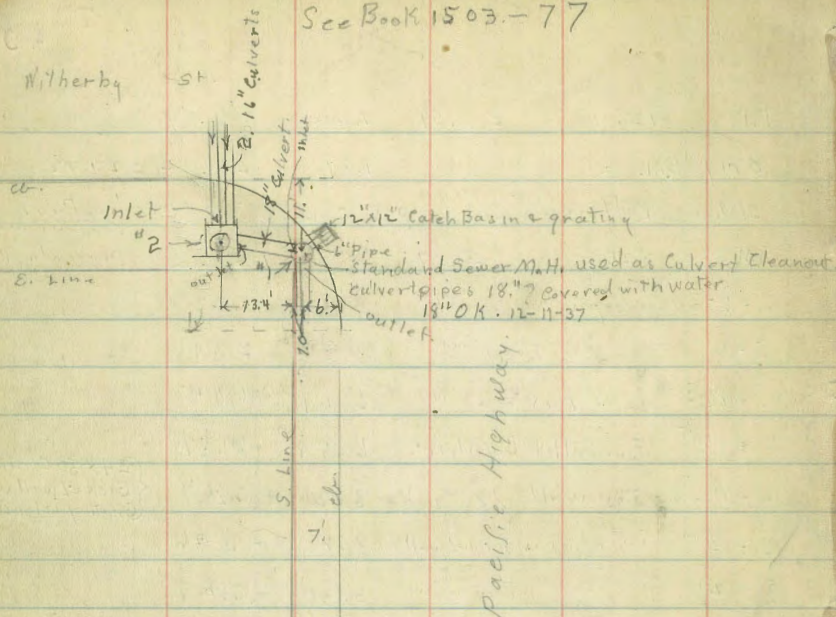 See Book 1503.-77
Witherby St
2. 16" Culverts
18" Culvert
inlet
cb.
11.'
Inlet
12"x12" Catch Basin & grating
#2
6" Pipe
Standard Sewer M.H. used as Culvert Cleanout
E. Line
outlet
#1
culvertpipes 18."? covered with water
13.4'
6.'
18" OK. 12-11-37
outlet.
Pacific Highway.
S. Line
cb.
7.'